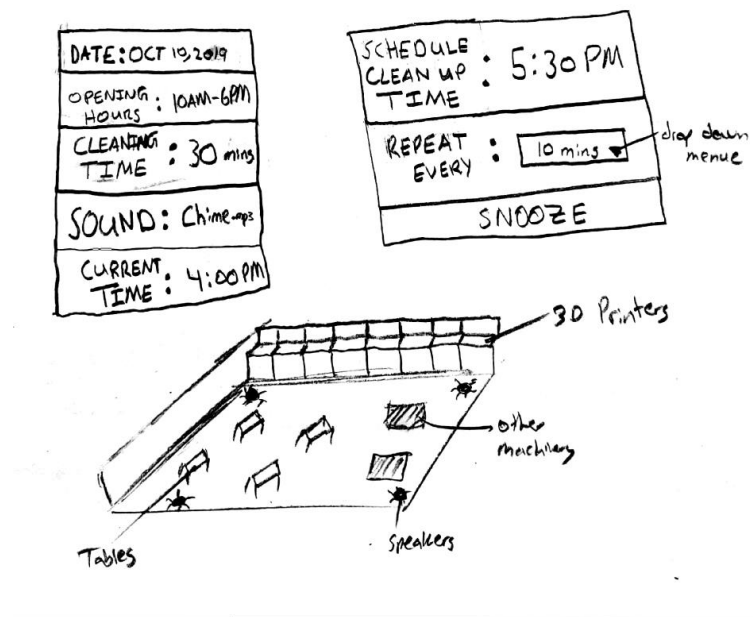 DATE: OCT 10, 2019
OPENING HOURS : 10AM-6PM
CLEANING TIME : 30 mins
SOUND: Chime.mp3
CURRENT TIME : 4:00 PM
SCHEDULE CLEAN UP TIME : 5:30 PM
REPEAT EVERY : 10 mins
drop down menue
SNOOZE
3D Printers
other machinery
Speakers
Tables